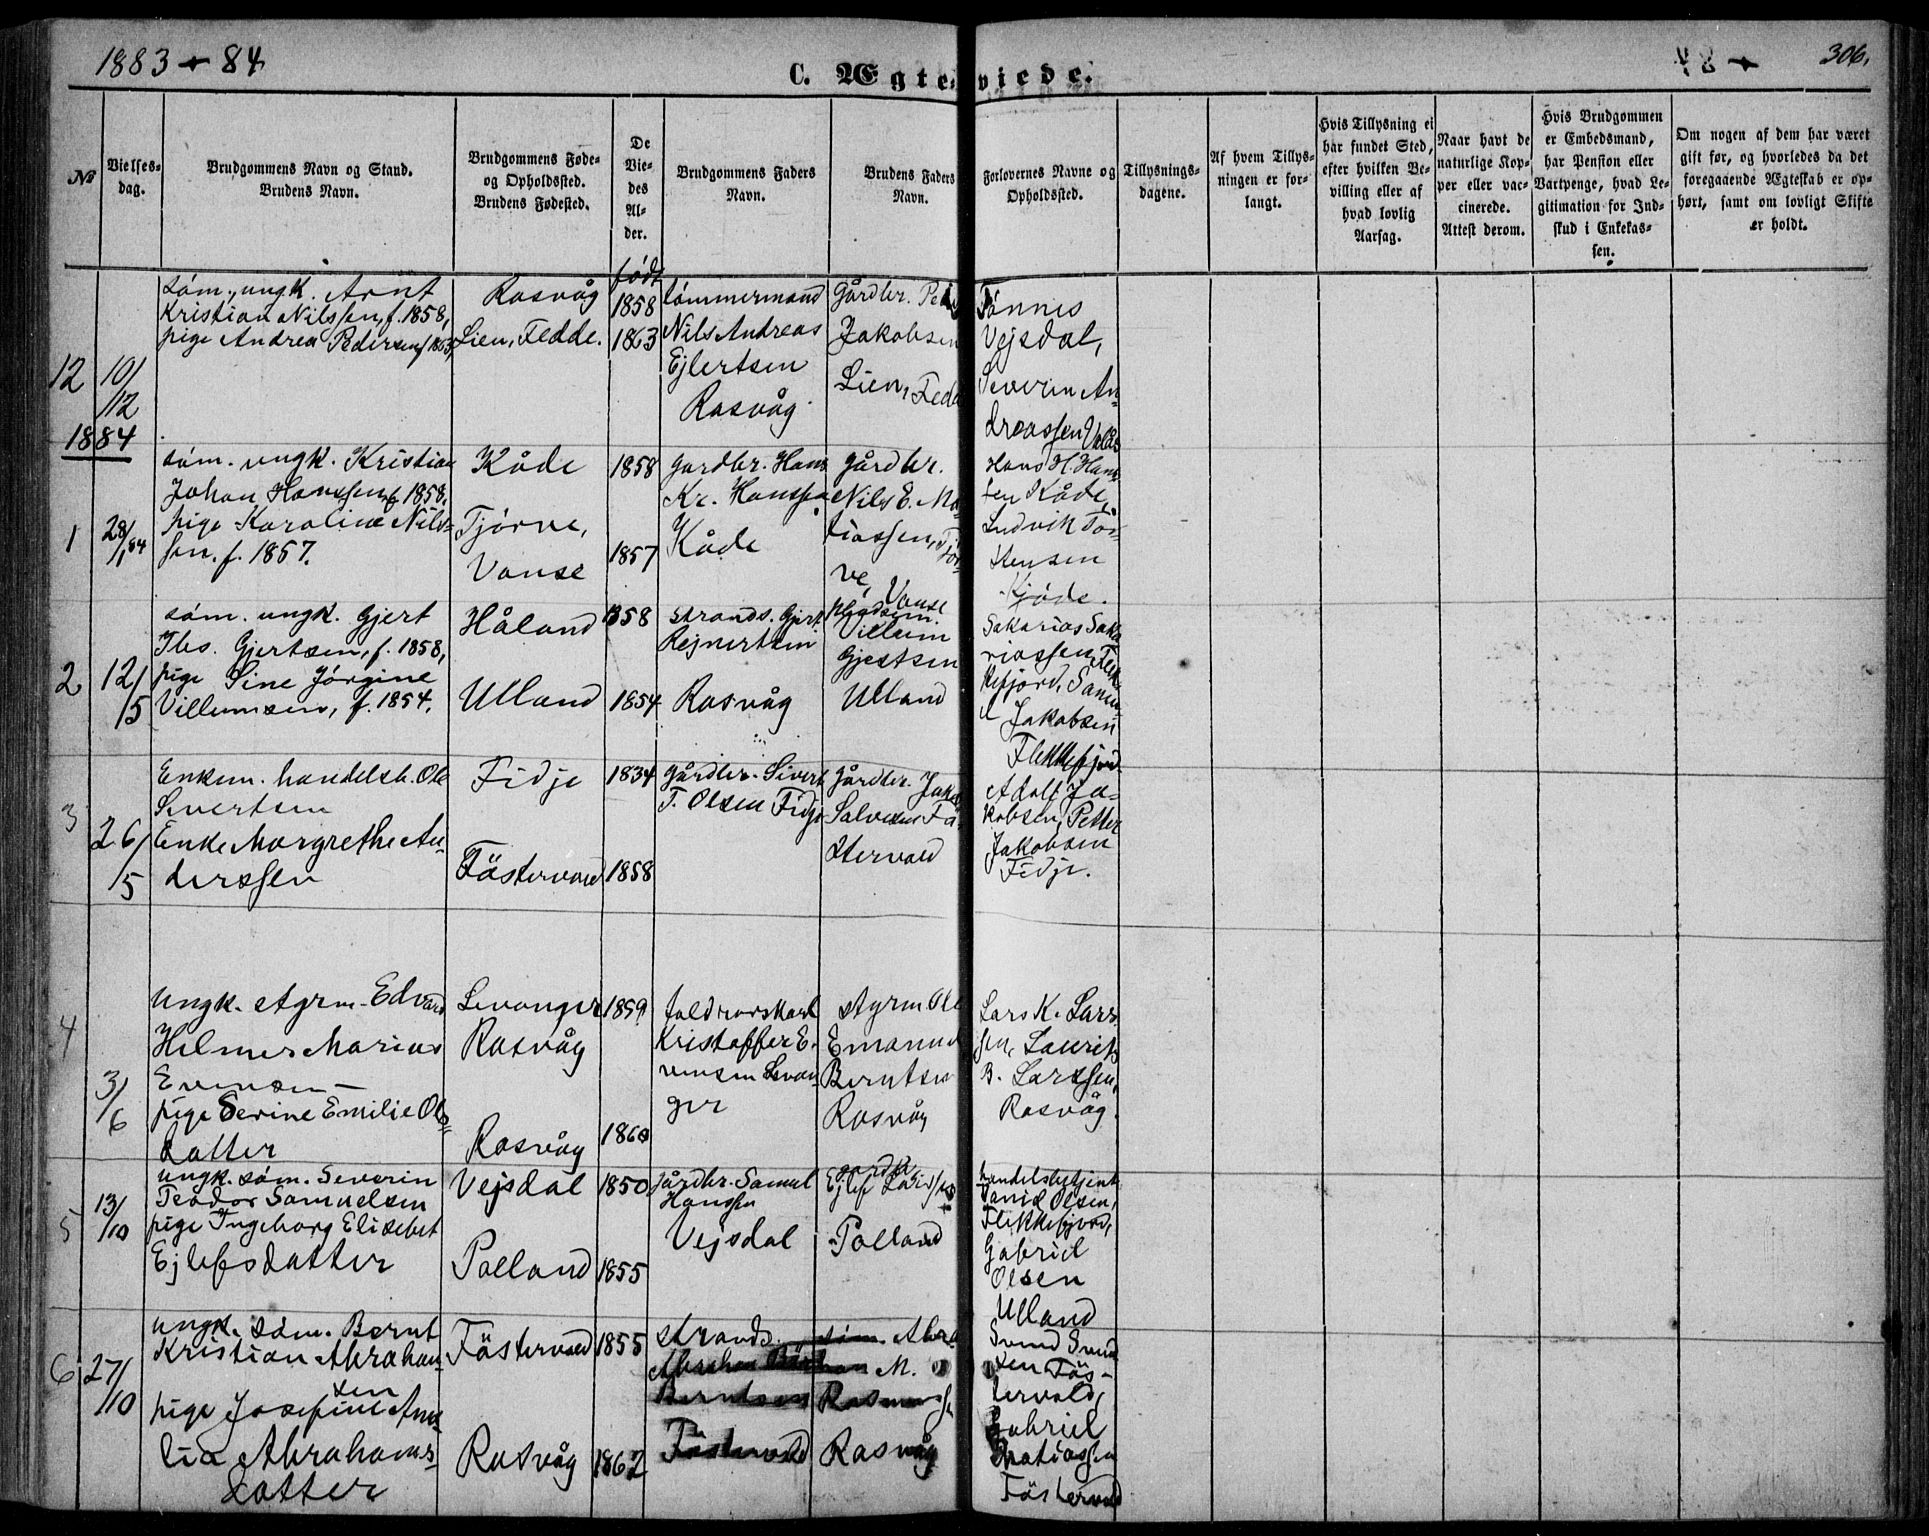 1883 + 84
C. Ægteviede.
306.
№
Vielses-
dag.
Brudgommens Navn og Stand.
Brudens Navn.
Brudgommens Føde-
og Opholdssted.
Brudens Fødested.
De
Vie-
des
Al-
der.
Brudgommens Faders
Navn.
Brudens Faders
Navn.
Forlovernes Navne og
Opholdssted.
Tillysnings-
dagene.
Af hvem Tillys-
ningen er for-
langt.
Hvis Tillysning ei
har fundet Sted,
efter hvilken Be-
villing eller af
hvad lovlig
Aarsag.
Naar havt de
naturlige Kop-
per eller vac-
cinerede.
Attest derom.
Hvis Brudgommen
er Embedsmand,
har Pension eller
Vartpenge, hvad Le-
gitimation for Ind-
skud i Enkekas-
sen.
Om nogen af dem har været
gift før, og hvorledes da det
foregaaende Ægteskab er op-
hørt, samt om lovligt Skifte
er holdt.
12
10/
/12
søm., ungk. Arnt
Kristian Nilssen, f. 1858,
pige Andrea Pedersen f 1863,
Rasvåg
Lien, Fedde.
født
1858
1863
tømmermand
Nils Andreas
Ejlertsen
Rasvåg
Gårdbr. Peder
Jakobsen
Lien, Fedde
Tønnes
Vejsdal,
Severin An-
dreassen Valås
1884
1
28/
/1 84
søm. ungk. Kristian
Johan Hanssen f. 1858.
pige Karoline Nils-
sen. f. 1857.
Kåde
Tjørve,
Vanse
1858
1857
gardbr. Hans
Kr. Hanssen
Kåde
gårdbr.
Nils E. Ma-
tiassen, Tjør-
ve, Vanse
Hans H. Hans-
sen Kåde,
Ludvik Tor-
stensen
Kjøde.
2
12/
/5
søm. ungk. Gjert
Tbs. Gjertsen, f. 1858,
pige Sine Jørgine
Villumsen, f. 1854.
Håland
Ulland
1858
1854
strands. Gjert
Rejnertsen
Rasvåg
Villum
Gjertsen
Ulland
Sakarias Saka-
riassen, Flek-
kefjord, Samu-
el Jakobsen
Flekkefjord
3
26/
/5
Enkem. handelsb. Ole
Sivertsen
Enke Margrethe An-
derssen
Fidje
Fästervold
1834
1858
gårdbr. Sivert
T. Olsen Fidje
gårdbr. Jakob
Salvesen Fä-
stervold
Adolf Ja-
kobsen, Petter
Jakobsen
Fidje.
4
3/
/6
Ungk. styrm. Edvard
Hilmer Marius
Evensen
pige Serine Emilie Ols-
datter
Levanger
Rasvåg
Rasvåg
1859
1860
toldrorskarl
Kristoffer E-
vensen Levan-
ger
styrm Ole
Emanuel
Berntsen
Rasvåg
Lars K. Lars-
sen, Laurits
B. Larssen,
Rasvåg.
5
13/
/10
ungk. søm. Severin
Teodor Samuelsen
pige Ingeborg Elisebet
Ejlefsdatter
Vejsdal
Polland
1850
1855
gårdbr. Samuel
Hanssen
Vejsdal
gårdbr
Ejlef
Polland
handelsbetjent
Daniel Olsen,
Flekkefjord,
Gabriel
Olsen
Ulland
6
27/
/10
ungk. søm. Bernt
Kristian Abraham-
sen
pige Josefine Ama-
lia Abrahams-
datter
Fästervold
Rasvåg
1855
1862
strands.
Abraham
Berntsen
Fästervold
søm. Abra-
ham M.
Rasmussen
Rasvåg
Svend Svend-
sen Fäs-
tervold,
Gabriel
Matiassen
Fästervold